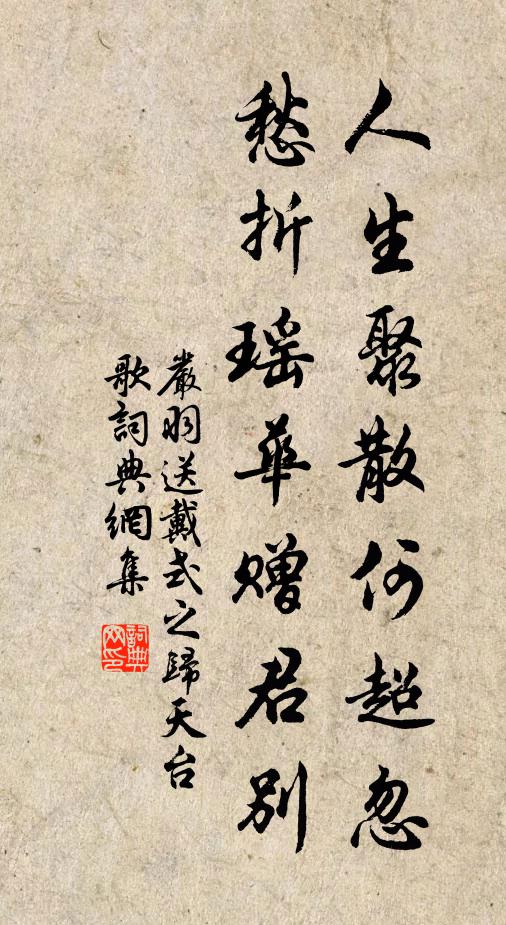 人生聚散何超忽
愁折瑶華赠君别
嚴羽送戴式之歸天台
歌詞典網集
詞典网印